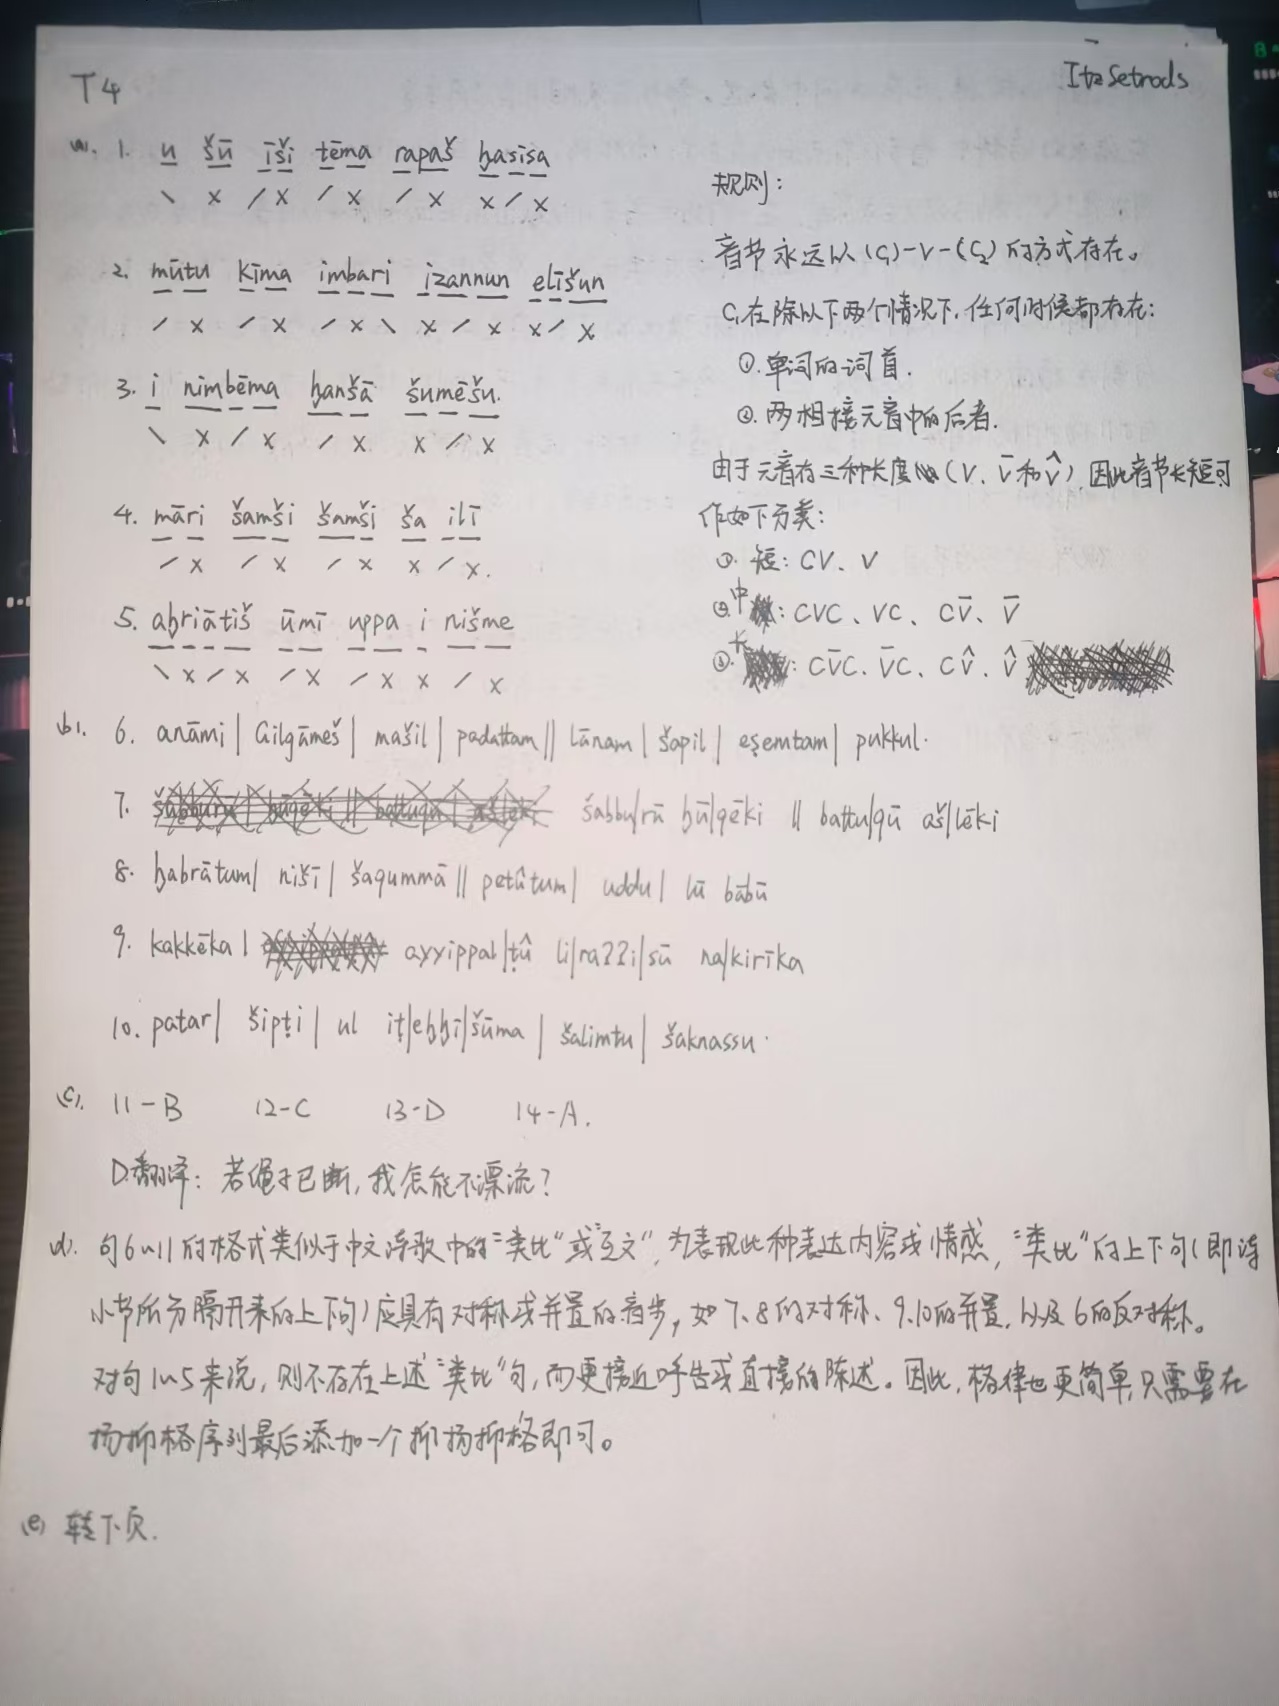 T4
ItzSetrods
(a). 1. u šū īši tēma rapaš ḫasīsa
\ x / x / x / x x / x
2. mūtu kīma imbari izannun elīšun
/ x / x / x \ x / x x / x
3. i nimbēma ḫanšā šumēšu.
\ x / x / x x / x
4. māri šamši šamši ša ilī
/ x / x / x x / x.
5. aḫriātiš ūmī uppa i nišme
\ x / x / x / x x / x
规则:
音节永远以 (C₁)-V-(C₂) 的方式存在。
C₁在除以下两个情况下,任何时候都存在:
①.单词的词首.
②.两相接元音中的后者.
由于元音存三种长度 (V、V̄和V̂),因此音节长短可
作如下分类:
①. 短: CV、V
②中: CVC、VC、CV̄、V̄
③.长: CV̄C、V̄C、CV̂、V̂
(b). 6. anāmi| Gilgāmeš| mašil| padattam|| lānam| šapil| eṣemtam| pukkul.
7. šabbu/rū ḫū/qēki || battu/qū aš/lēki
8. ḫabrātum| nišī| šaqummā|| petûtum| uddu| lū bābū
9. kakkēka| ayyippal|ṭû li|ra22i|sū na/kirīka
10. patar| šipṭi| ul iṭ|eḫḫī|šūma| šalimtu| šaknassu.
(c). 11-B 12-C 13-D 14-A.
D.翻译: 若绳子已断,我怎能不漂流?
(d). 句6~11的格式类似于中文诗歌中的"类比"或"互文",为表现此种表达内容或情感,"类比"的上下句(即诗
小节所分隔开来的上下句)应具有对称或并置的音步,如7、8的对称、9、10的并置,以及6的反对称。
对句1~5来说,则不存在上述"类比"句,而更接近呼告或直接的陈述。因此,格律也更简单,只需要在
扬抑格序列最后添加一个抑扬抑格即可。
(e) 转下页.